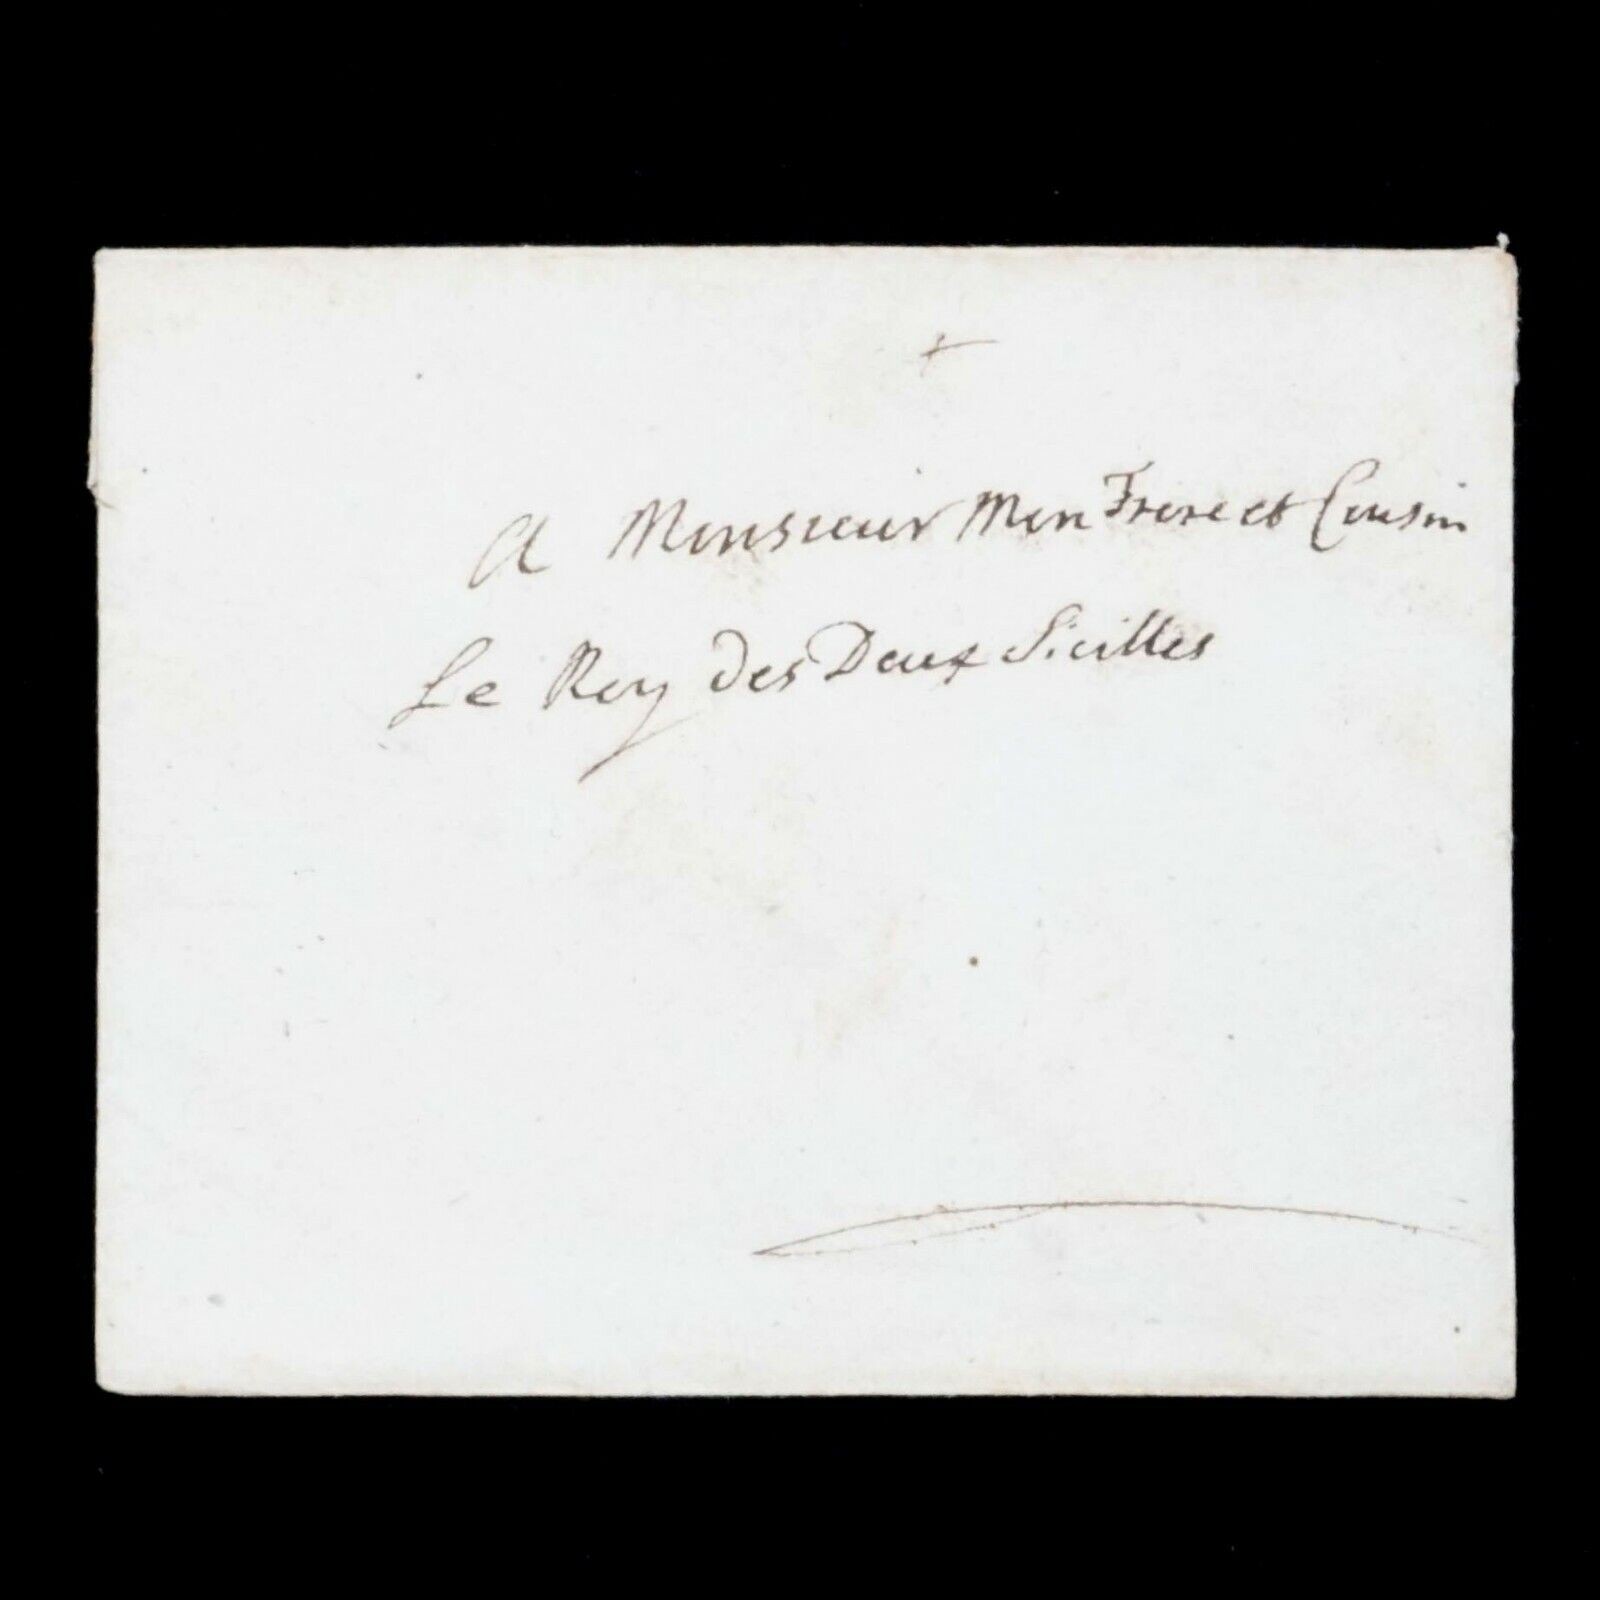 A Monsieur Mon Frere et Cousin
Le Roy des Deux Siciles